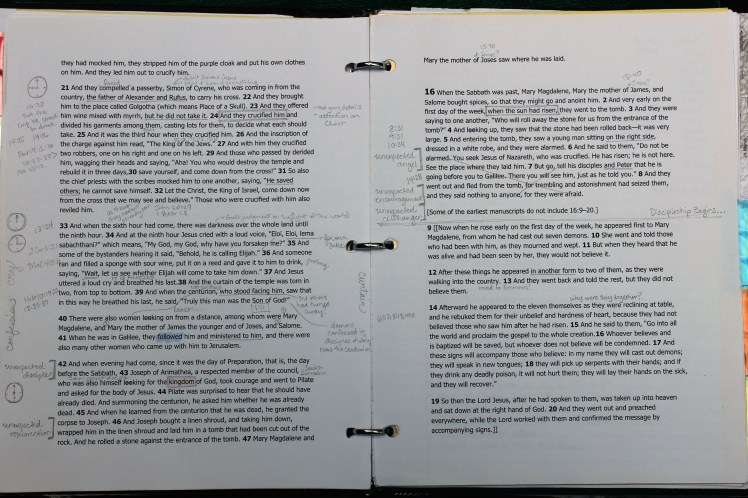 they had mocked him, they stripped him of the purple cloak and put his own clothes
on him. And they led him out to crucify him.
21 And they compelled a passerby, Simon of Cyrene, who was coming in from the
country, the father of Alexander and Rufus, to carry his cross. 22 And they brought
him to the place called Golgotha (which means Place of a Skull). 23 And they offered
him wine mixed with myrrh, but he did not take it. 24 And they crucified him and
divided his garments among them, casting lots for them, to decide what each should
take. 25 And it was the third hour when they crucified him. 26 And the inscription of
the charge against him read, "The King of the Jews." 27 And with him they crucified
two robbers, one on his right and one on his left. 29 And those who passed by derided
him, wagging their heads and saying, "Aha! You who would destroy the temple and
rebuild it in three days,30 save yourself, and come down from the cross!" 31 So also
the chief priests with the scribes mocked him to one another, saying, "He saved
others; he cannot save himself. 32 Let the Christ, the King of Israel, come down now
from the cross that we may see and believe." Those who were crucified with him also
reviled him.
33 And when the sixth hour had come, there was darkness over the whole land until
the ninth hour. 34 And at the ninth hour Jesus cried with a loud voice, "Eloi, Eloi, lema
sabachthani?" which means, "My God, my God, why have you forsaken me?" 35 And
some of the bystanders hearing it said, "Behold, he is calling Elijah." 36 And someone
ran and filled a sponge with sour wine, put it on a reed and gave it to him to drink,
saying, "Wait, let us see whether Elijah will come to take him down." 37 And Jesus
uttered a loud cry and breathed his last.38 And the curtain of the temple was torn in
two, from top to bottom. 39 And when the centurion, who stood facing him, saw that
in this way he breathed his last, he said, "Truly this man was the Son of God!"
40 There were also women looking on from a distance, among whom were Mary
Magdalene, and Mary the mother of James the younger and of Joses, and Salome.
41 When he was in Galilee, they followed him and ministered to him, and there were
also many other women who came up with him to Jerusalem.
unexpected
disciples
42 And when evening had come, since it was the day of Preparation, that is, the day
before the Sabbath, 43 Joseph of Arimathea, a respected member of the council,
who was also himself looking for the kingdom of God, took courage and went to Pilate
and asked for the body of Jesus. 44 Pilate was surprised to hear that he should have
already died. And summoning the centurion, he asked him whether he was already
dead. 45 And when he learned from the centurion that he was dead, he granted the
corpse to Joseph. 46 And Joseph bought a linen shroud, and taking him down,
wrapped him in the linen shroud and laid him in a tomb that had been cut out of the
rock. And he rolled a stone against the entrance of the tomb. 47 Mary Magdalene and
curtains
15:40
Mary the mother of Joses saw where he was laid.
16 When the Sabbath was past, Mary Magdalene, Mary the mother of James, and
Salome bought spices, so that they might go and anoint him. 2 And very early on the
first day of the week, when the sun had risen, they went to the tomb. 3 And they were
saying to one another, "Who will roll away the stone for us from the entrance of the
tomb?" 4 And looking up, they saw that the stone had been rolled back—it was very
large. 5 And entering the tomb, they saw a young man sitting on the right side,
dressed in a white robe, and they were alarmed. 6 And he said to them, "Do not be
alarmed. You seek Jesus of Nazareth, who was crucified. He has risen; he is not here.
See the place where they laid him. 7 But go, tell his disciples and Peter that he is
going before you to Galilee. There you will see him, just as he told you." 8 And they
went out and fled from the tomb, for trembling and astonishment had seized them,
and they said nothing to anyone, for they were afraid.
8:31
9:31
10:34
unexpected
angel
14:28
unexpected
encouragement
unexpected
cliffhanger
[Some of the earliest manuscripts do not include 16:9–20.]
Discipleship Begins...
9 [[Now when he rose early on the first day of the week, he appeared first to Mary
Magdalene, from whom he had cast out seven demons. 10 She went and told those
who had been with him, as they mourned and wept. 11 But when they heard that he
was alive and had been seen by her, they would not believe it.
12 After these things he appeared in another form to two of them, as they were
walking into the country. 13 And they went back and told the rest, but they did not
believe them.
why were they together?
14 Afterward he appeared to the eleven themselves as they were reclining at table,
and he rebuked them for their unbelief and hardness of heart, because they had not
believed those who saw him after he had risen. 15 And he said to them, "Go into all
the world and proclaim the gospel to the whole creation. 16 Whoever believes and
is baptized will be saved, but whoever does not believe will be condemned. 17 And
these signs will accompany those who believe: in my name they will cast out demons;
they will speak in new tongues; 18 they will pick up serpents with their hands; and if
they drink any deadly poison, it will not hurt them; they will lay their hands on the sick,
and they will recover."
19 So then the Lord Jesus, after he had spoken to them, was taken up into heaven
and sat down at the right hand of God. 20 And they went out and preached
everywhere, while the Lord worked with them and confirmed the message by
accompanying signs.]]